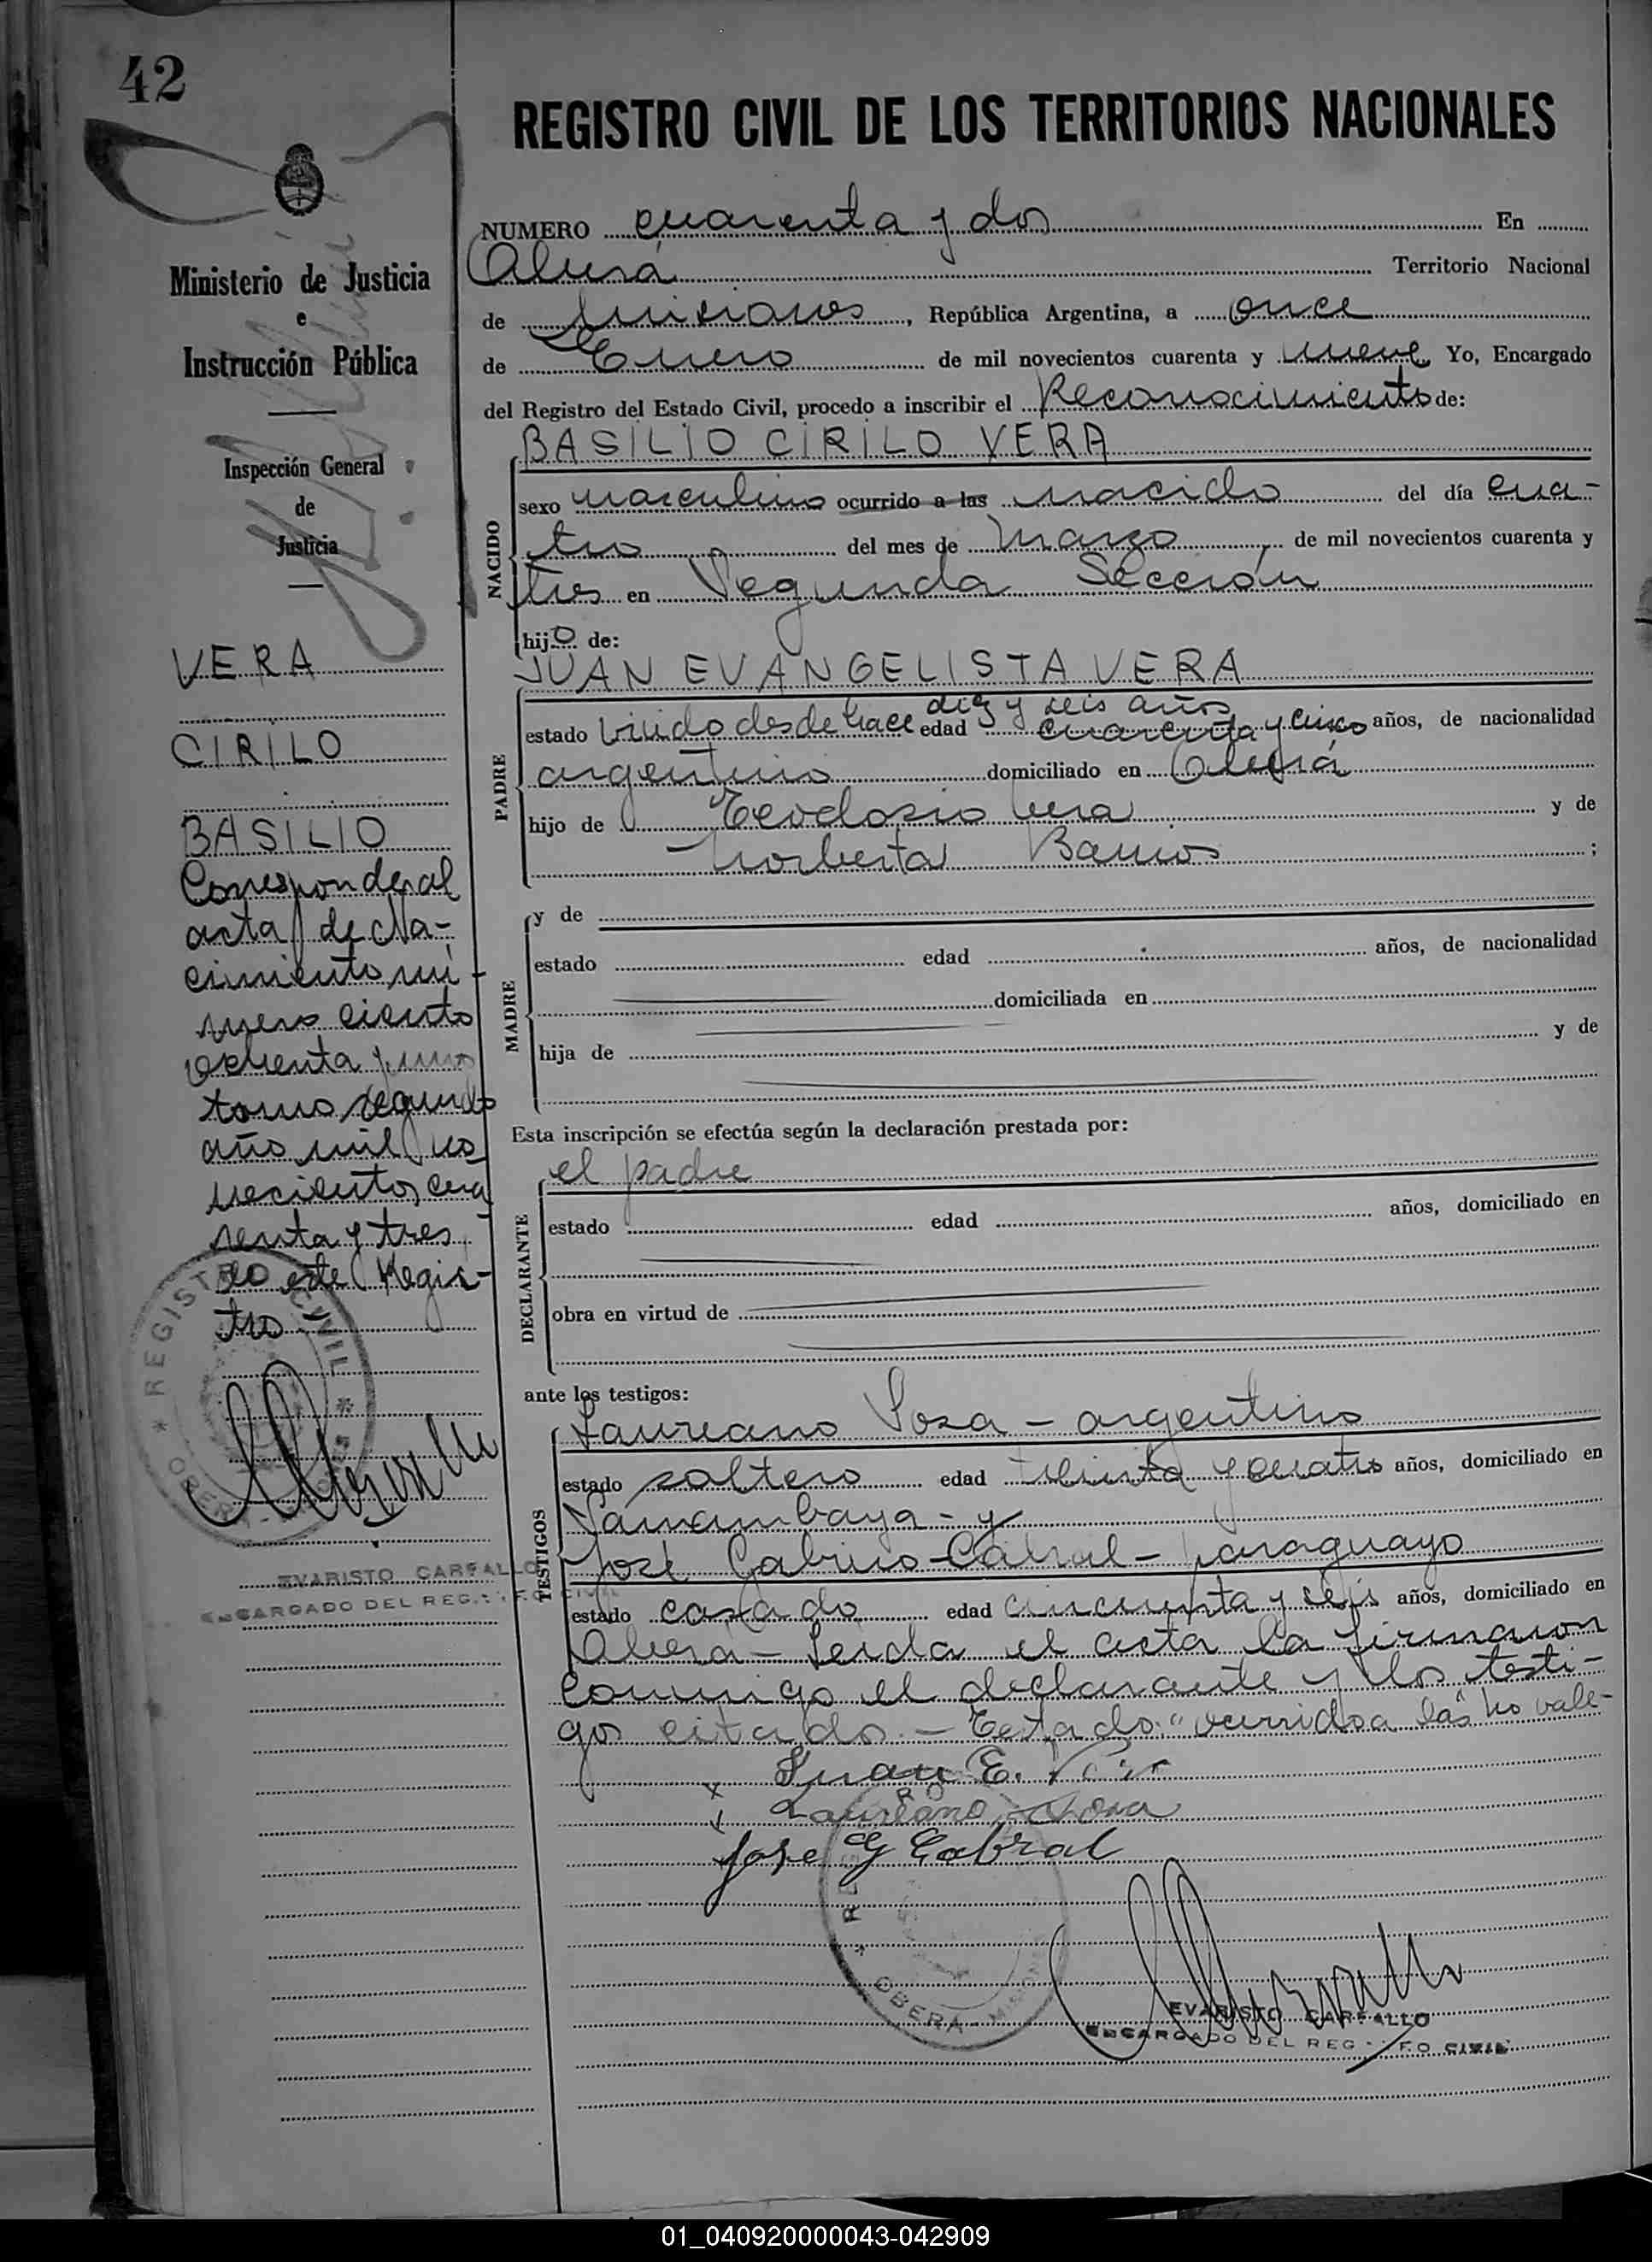 42
REGISTRO CIVIL DE LOS TERRITORIOS NACIONALES
Ministerio de Justicia
e
Instrucción Pública
Inspección General
de
Justicia
VERA
CIRILO
BASILIO
Corresponde al
acta de Na-
cimiento nú-
mero ciento
ochenta y uno
tomo segundo
año mil no
vecientos cua
renta y tres
de este Regis-
tro
REGISTRO CIVIL
OBERA
EVARISTO CARFALLO
ENCARGADO DEL REG. CIVIL
NUMERO cuarenta y dos En
Oberá Territorio Nacional
de Misiones, República Argentina, a once
de Enero de mil novecientos cuarenta y nueve Yo, Encargado
del Registro del Estado Civil, procedo a inscribir el Reconocimiento de:
BASILIO CIRILO VERA
NACIDO
sexo masculino ocurrido a las nacido del día cua-
tro del mes de Marzo de mil novecientos cuarenta y
tres en Segunda Sección
hijo de:
JUAN EVANGELISTA VERA
PADRE
diez y seis años
estado viudo desde hace edad cuarenta y cinco años, de nacionalidad
argentino domiciliado en Oberá
hijo de Teodosio Vera y de
Norberta Barrios ;
MADRE
y de
estado edad años, de nacionalidad
domiciliada en
hija de y de
Esta inscripción se efectúa según la declaración prestada por:
DECLARANTE
el padre
estado edad años, domiciliado en
obra en virtud de
ante los testigos:
TESTIGOS
Laureano Sosa - argentino
estado soltero edad treinta y cuatro años, domiciliado en
Samambaya - y
José Gabino Cabral - paraguayo
estado casado edad cincuenta y seis años, domiciliado en
Oberá - Leida el acta la firmaron
conmigo el declarante y los testi-
gos citados. - Testado: "ocurrido a las" no vale-
Juan E. Vera
Laureano Sosa
Jose G Cabral
OBERA - MISIONES
EVARISTO CARFALLO
ENCARGADO DEL REG. CIVIL
01_040920000043-042909